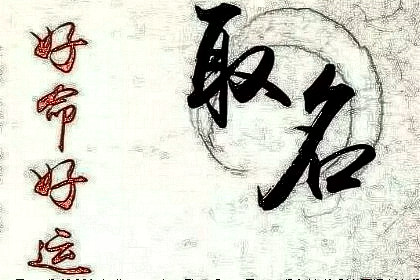 取名
好命好运